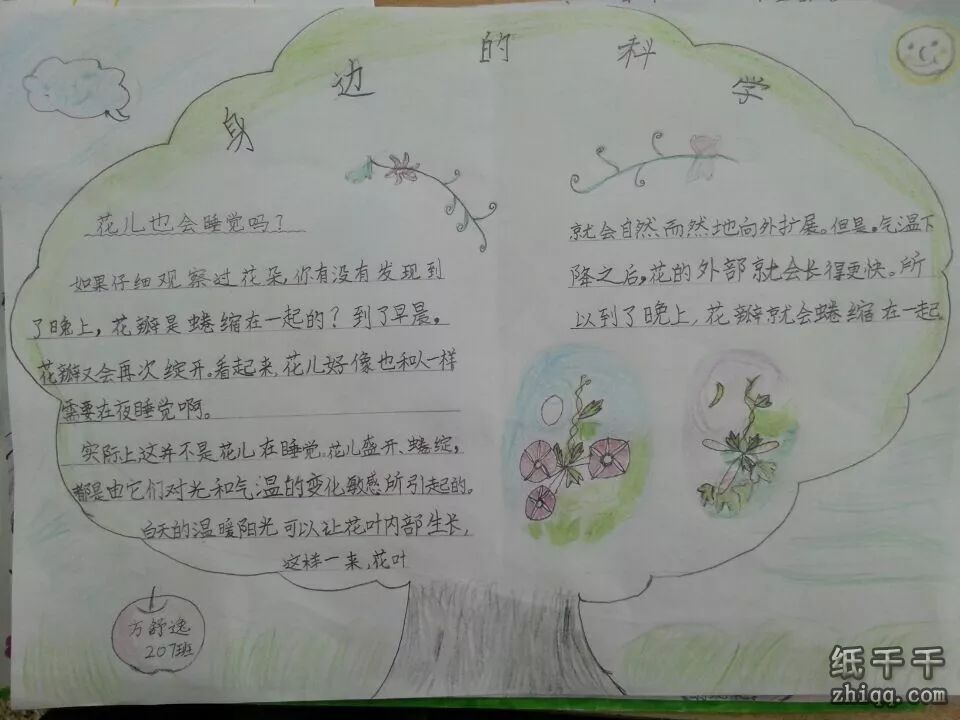 身边的科学
花儿也会睡觉吗?
如果仔细观察过花朵,你有没有发现到
了晚上,花瓣是蜷缩在一起的?到了早晨,
花瓣又会再次绽开。看起来,花儿好像也和人一样
需要在夜睡觉啊。
实际上这并不是花儿在睡觉。花儿盛开、蜷绽,
都是由它们对光和气温的变化敏感所引起的。
白天的温暖阳光可以让花叶内部生长,
这样一来,花叶
就会自然而然地向外扩展。但是,气温下
降之后,花的外部就会长得更快。所
以到了晚上,花瓣就会蜷缩在一起。
方舒逸
207班
纸千千
zhiqq.com